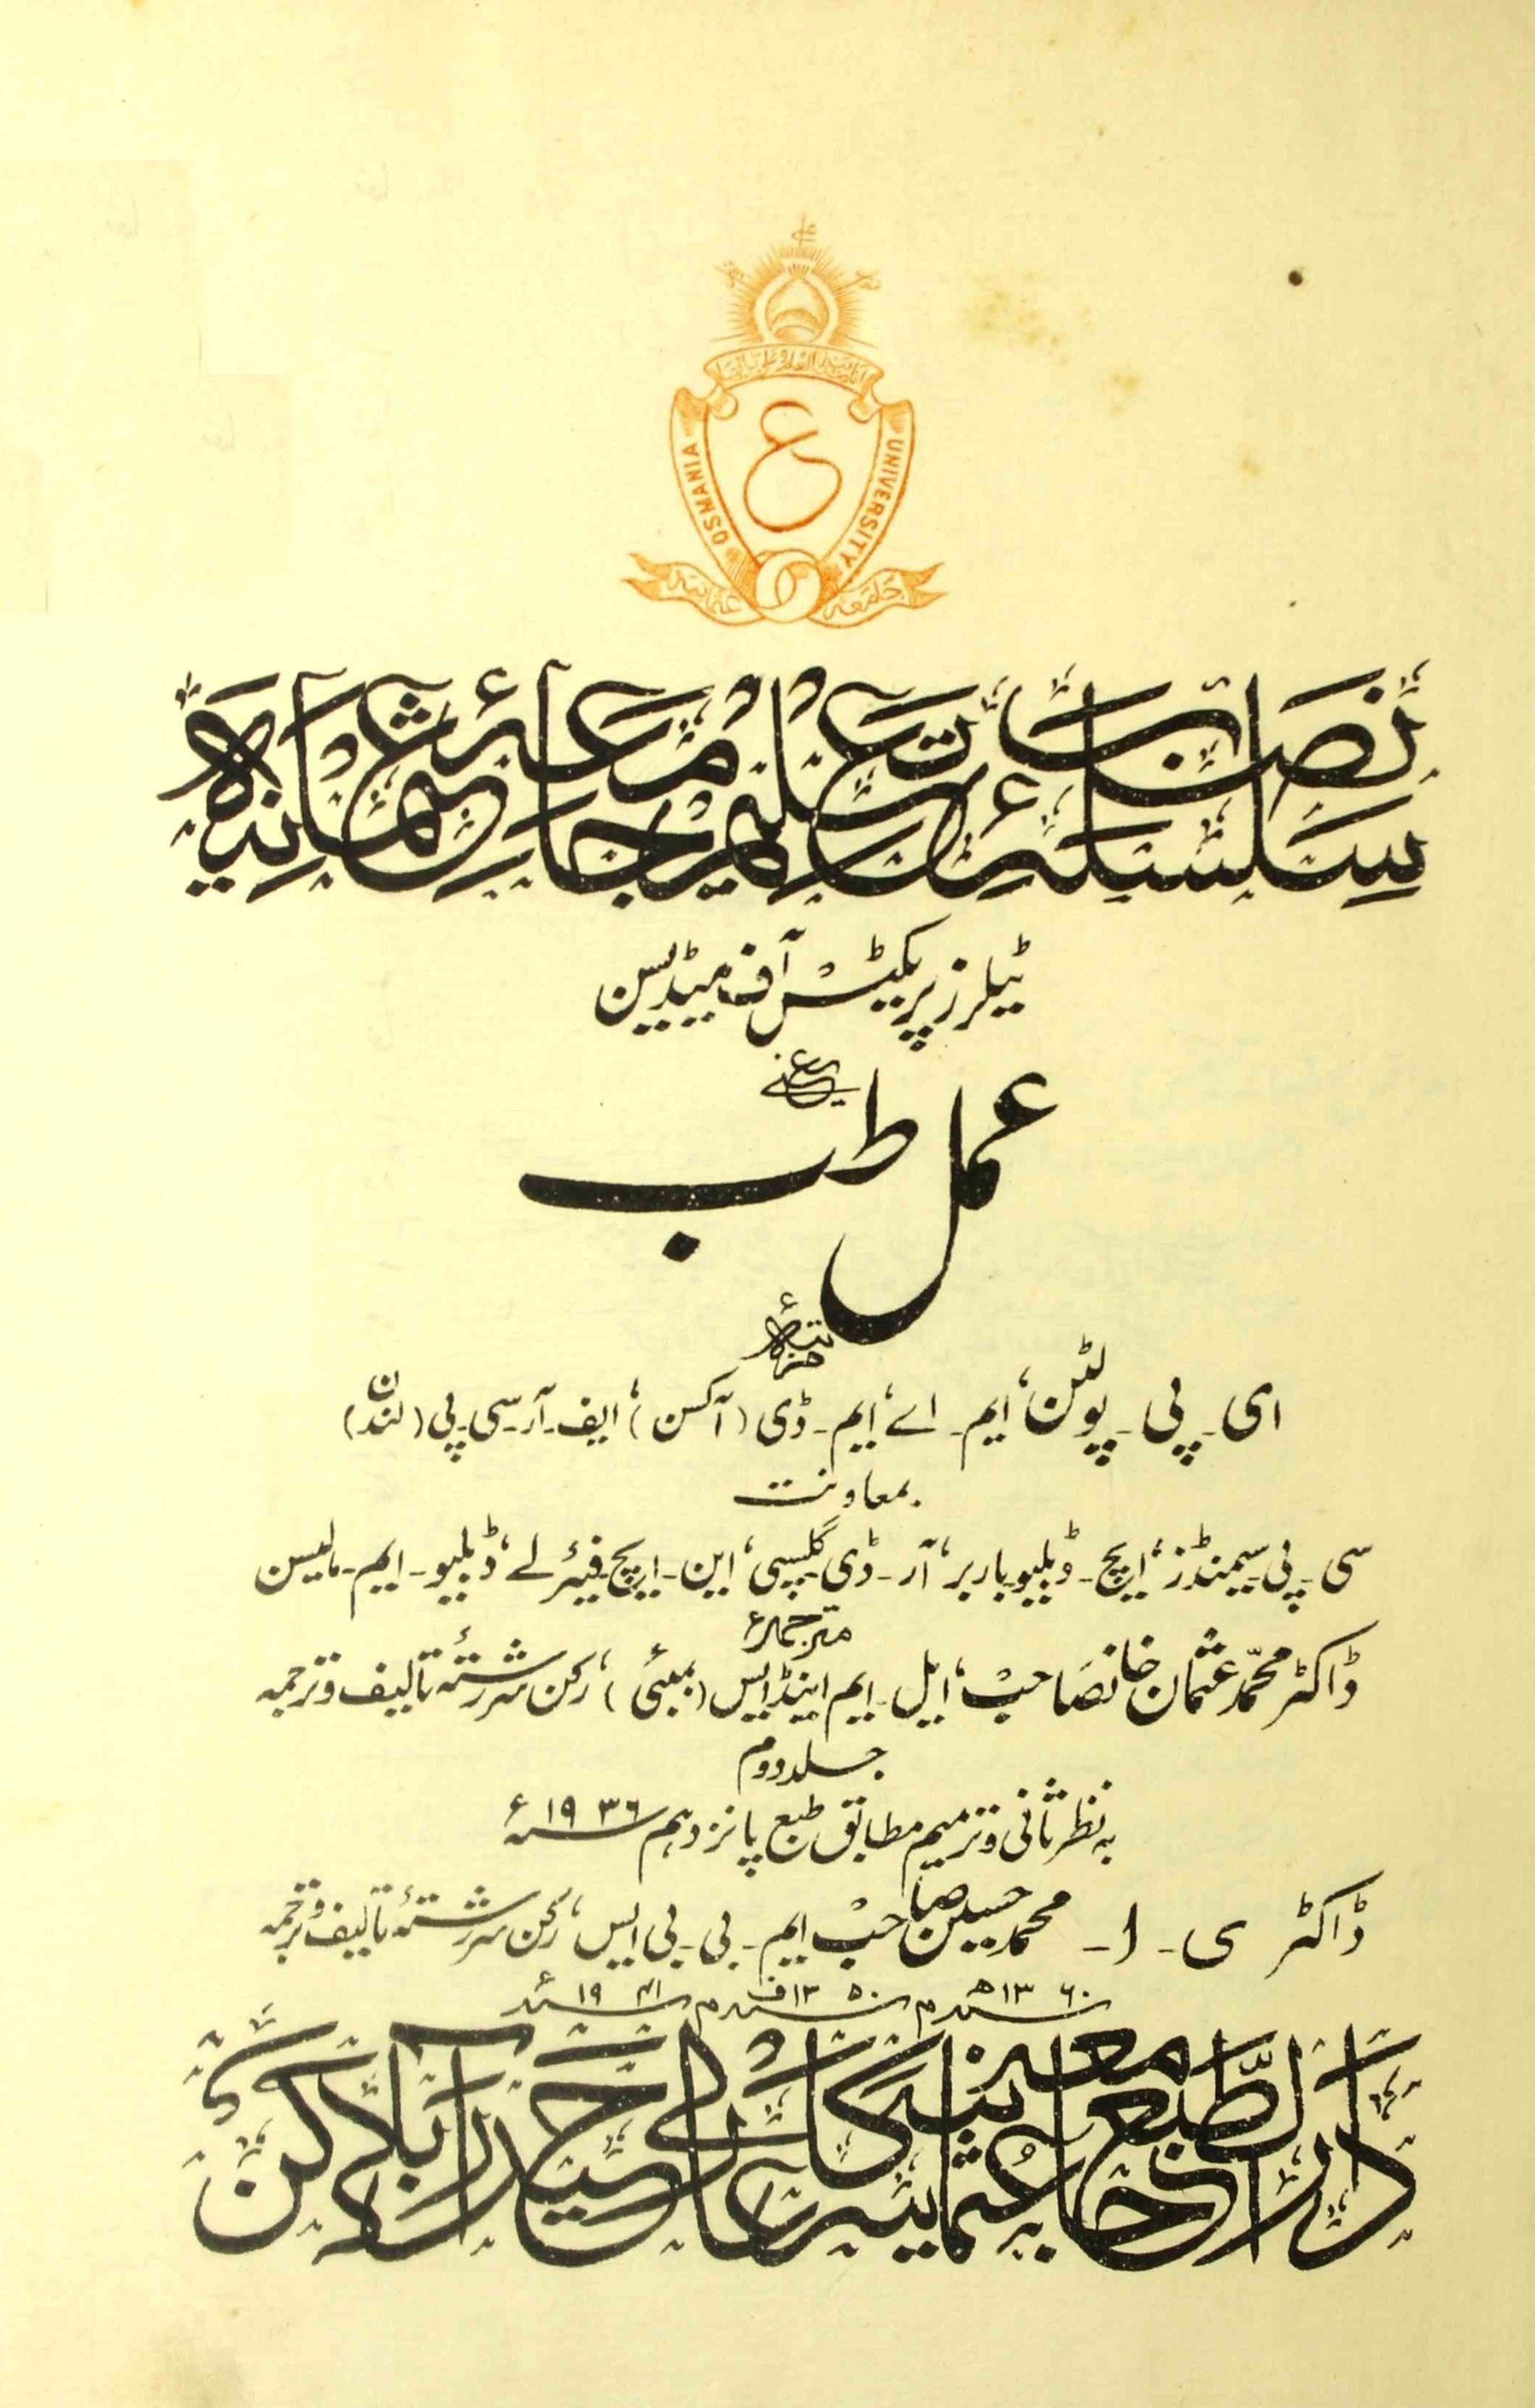 OSMANIA UNIVERSITY
ع
جامعہ عثمانیہ
سلسلۂ نصاب تعلیم جامعۂ عثمانیہ
ٹیلرز پریکٹس آف میڈیسن
یعنی
عمل طب
ای۔ پی۔ پولٹن، ایم۔ اے، ایم۔ ڈی (آکسن)، ایف۔ آر۔ سی۔ پی (لندن)
بمعاونت
سی۔ پی۔ سیمنڈز، ایچ۔ ڈبلیو باربر، آر۔ ڈی گلپسی، این۔ ایچ۔ فیئر لے، ڈبلیو۔ ایم۔ مالیسن
مترجمۂ
ڈاکٹر محمد عثمان خانصاحب، ایل۔ ایم اینڈ ایس (بمبئی)، رکن سررشتۂ تالیف و ترجمہ
جلد دوم
بہ نظر ثانی و ترمیم مطابق طبع پانزدہم سنہ ۱۹۳۶ء
ڈاکٹر ی۔ ا۔ محمد حسین صاحب ایم۔ بی۔ بی ایس، رکن سررشتۂ تالیف و ترجمہ
سنہ ۱۳۶۰ھ م سنہ ۱۳۵۰ف م سنہ ۱۹۴۱ء
دارالطبع جامعہ عثمانیہ سرکار عالی حیدرآباد دکن